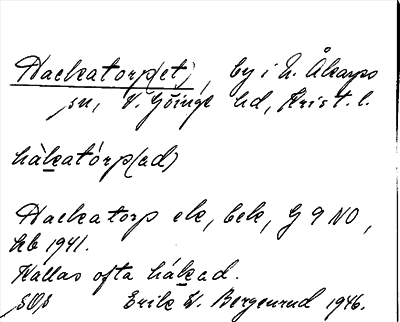 Hackatorp(et), by i N. Åkarps
sn, V. Göinge hd, Krist. l.
hàkatórp(ad)
Hackatorp ek, bek, G 9 NO,
hb 1941.
Kallas ofta hákad.
Erik W. Bergenrud 1946.